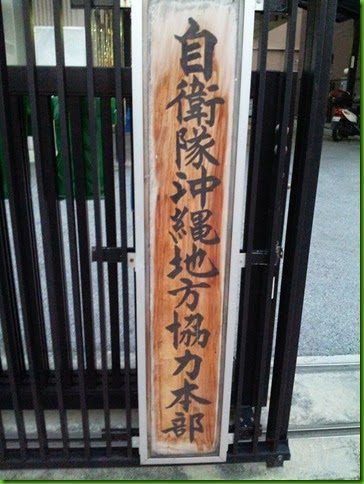 自衛隊沖縄地方協力本部